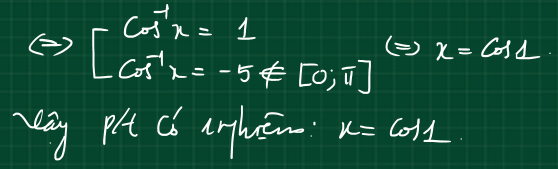 ⇔ [ Cos⁻¹x = 1
Cos⁻¹x = -5 ∉ [0; π] ⇔ x = Cos1.
Vậy p/t có nghiệm: x = Cos1.